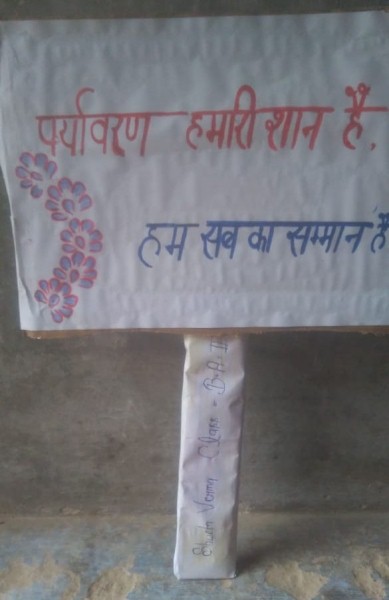 पर्यावरण हमारी शान है,
हम सब का सम्मान है
Verma Class - B.A. II